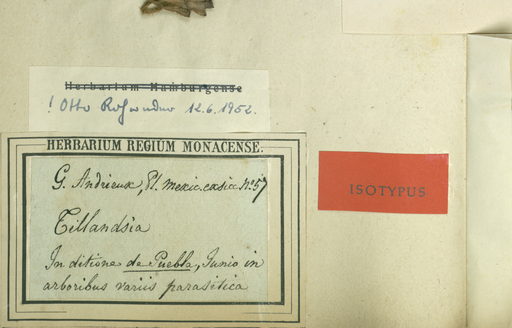 Herbarium Hamburgense
! Otto 12.6.1952.
HERBARIUM REGIUM MONACENSE.
G. Andrieux, Pl. mexic. exsic. No 57
ISOTYPUS
Tillandsia
In ditione de Puebla, Junio in
arboribus variis parasitica